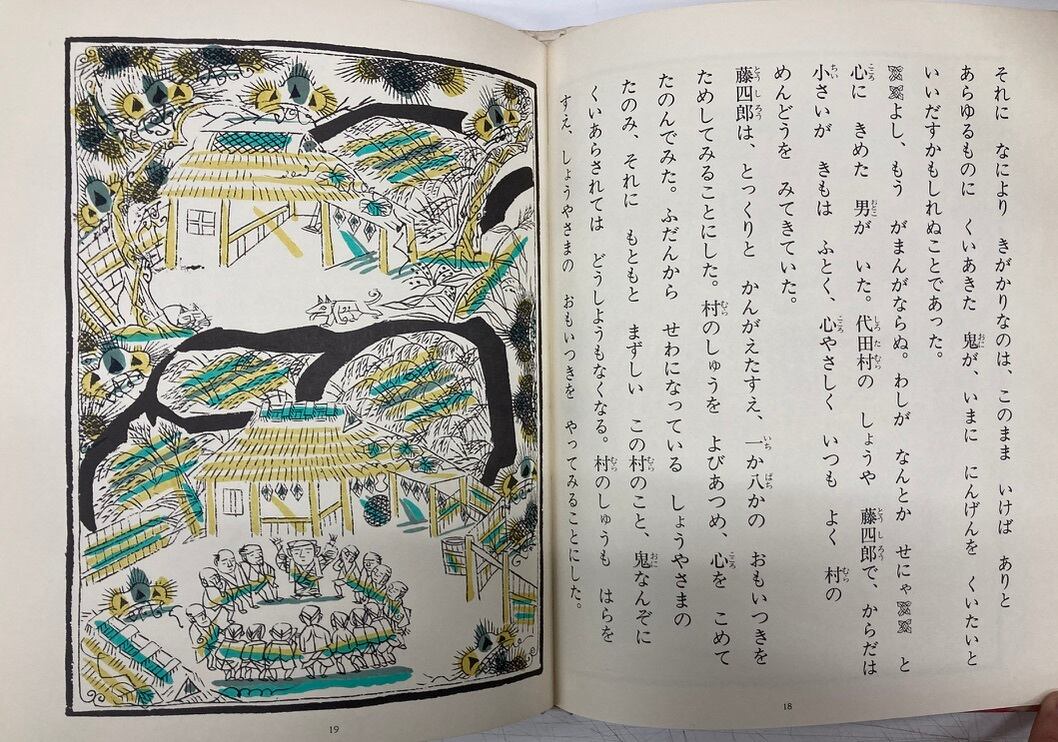 それに　なにより　きがかりなのは、このまま　いけば　ありと
あらゆるものに　くいあきた　鬼が、いまに　にんげんを　くいたいと
いいだすかもしれぬことであった。
よし、もう　がまんがならぬ。わしが　なんとか　せにゃ　と
心に　きめた　男が　いた。代田村の　しょうや　藤四郎で、からだは
小さいが　きもは　ふとく、心やさしく　いつも　よく　村の
めんどうを　みてきていた。
藤四郎は、とっくりと　かんがえたすえ、一か八かの　おもいつきを
ためしてみることにした。村のしゅうを　よびあつめ、心を　こめて
たのんでみた。ふだんから　せわになっている　しょうやさまの
たのみ、それに　もともと　まずしい　この村のこと、鬼なんぞに
くいあらされては　どうしようもなくなる。村のしゅうも　はらを
すえ、しょうやさまの　おもいつきを　やってみることにした。
18
19